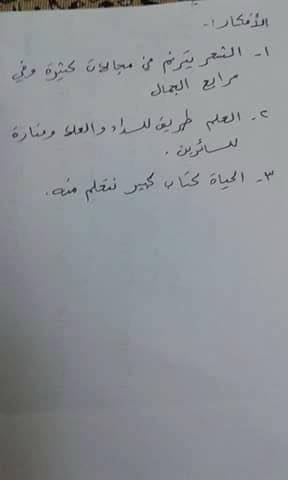 الأفكار :-
١- الشعر يترنم في مجالات كثيرة وفي
مرابع الجمال
٢- العلم طريق للسداد والعلا ومنارة
للسائرين .
٣- الحياة كتاب كبير نتعلم منه .